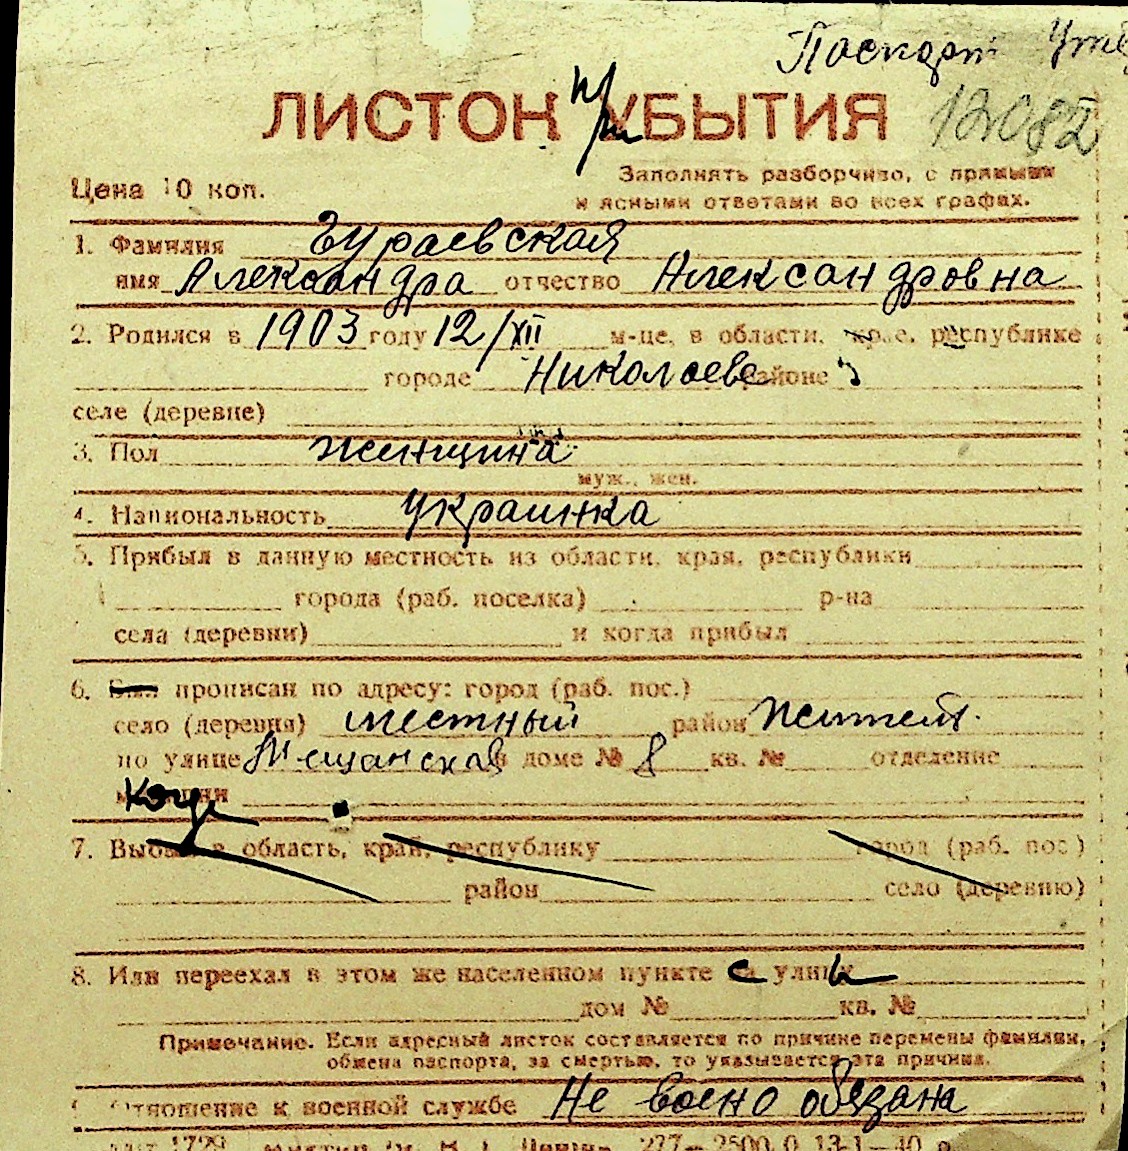 Паспорт
ЛИСТОК УБЫТИЯ
12082
Цена 10 коп.
Заполнять разборчиво, с прямыми
и ясными ответами во всех графах.
1. Фамилия Бураевская
имя Александра отчество Александровна
2. Родился в 1903 году 12/XII м-це, в области, крае, республике
городе Николаеве районе
селе (деревне)
3. Пол женщина
муж., жен.
4. Национальность украинка
5. Прибыл в данную местность из области, края, республики
города (раб. поселка) р-на
села (деревни) и когда прибыл
6. Был прописан по адресу: город (раб. пос.)
село (деревня) местный район жител.
по улице Мещанская в доме № 8 кв. № отделение
милиции
7. Выбыл в область, край, республику город (раб. пос.)
район село (деревню)
8. Или переехал в этом же населенном пункте с улицы
дом № кв. №
Примечание. Если адресный листок составляется по причине перемены фамилии,
обмена паспорта, за смертью, то указывается эта причина.
Отношение к военной службе Не воено обязана
277—2500.0 13-1—40 г.